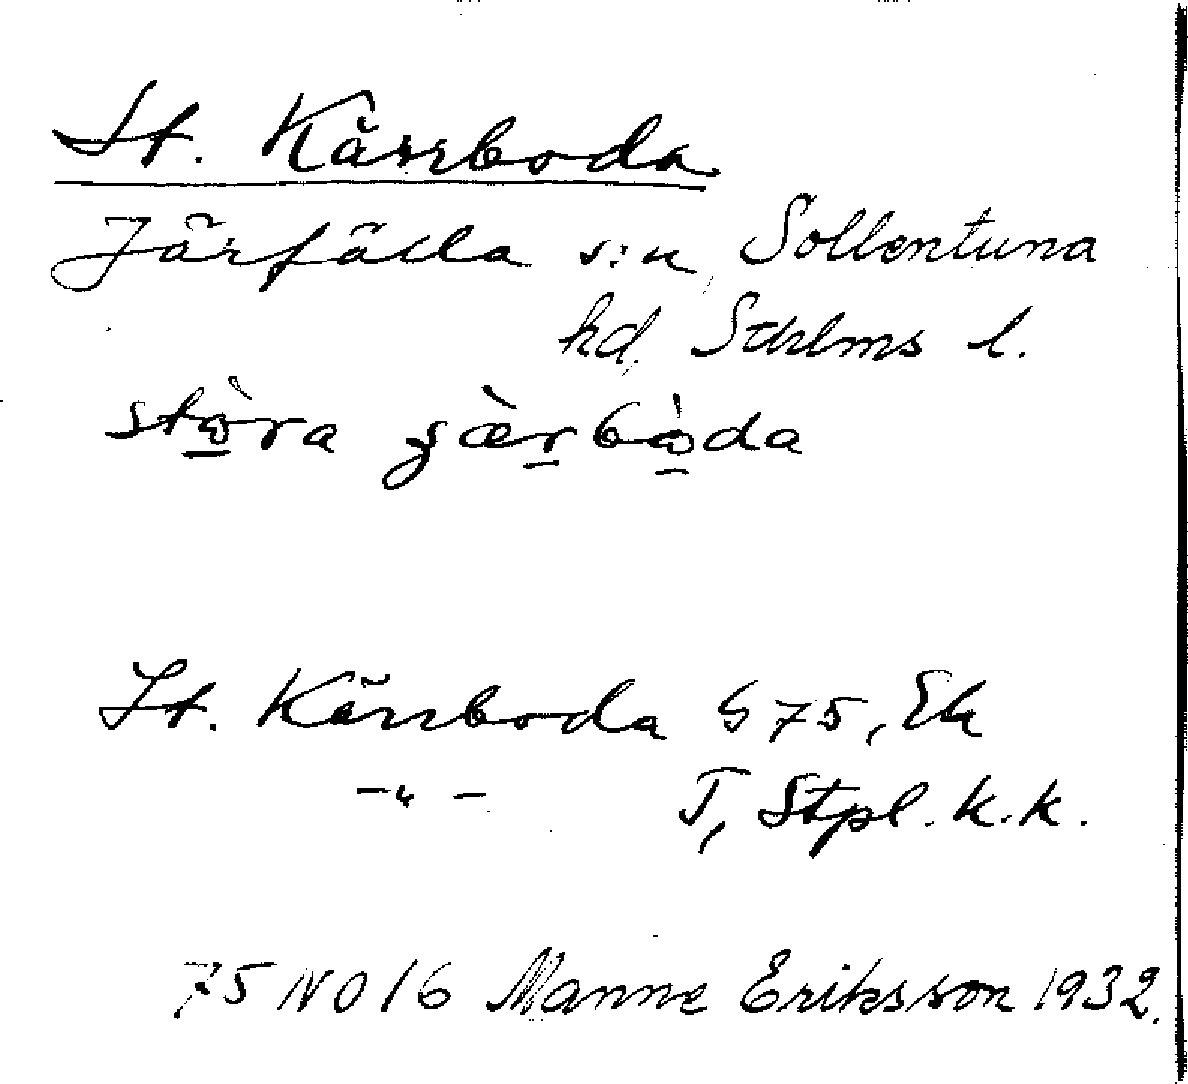 St. Kärrboda
Järfälla s:n, Sollentuna
hd, Sthlms l.
stòra gæ̀rbòda
St. Kärrboda G 75, Ek
-"- T, Stpl. k.k.
75 NO 16 Manne Eriksson 1932.